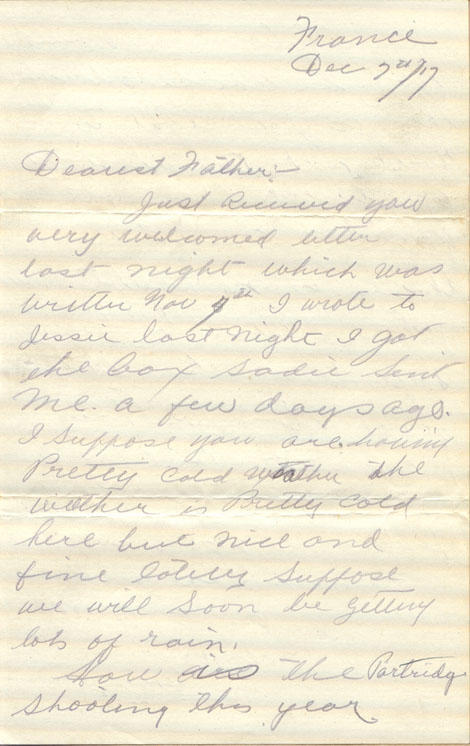 France
Dec 7th/17
Dearest Father:—
Just Received you
very welcomed letter
last night which was
written Nov 4th I wrote to
Jessie last night I got
the box Sadie Sent
me. a few days ago.
I Suppose you are having
Pretty cold weather the
weather is Pretty cold
here but nice and
fine lately Suppose
we will Soon be getting
lots of rain.
How is the Partridge
Shooting this year.